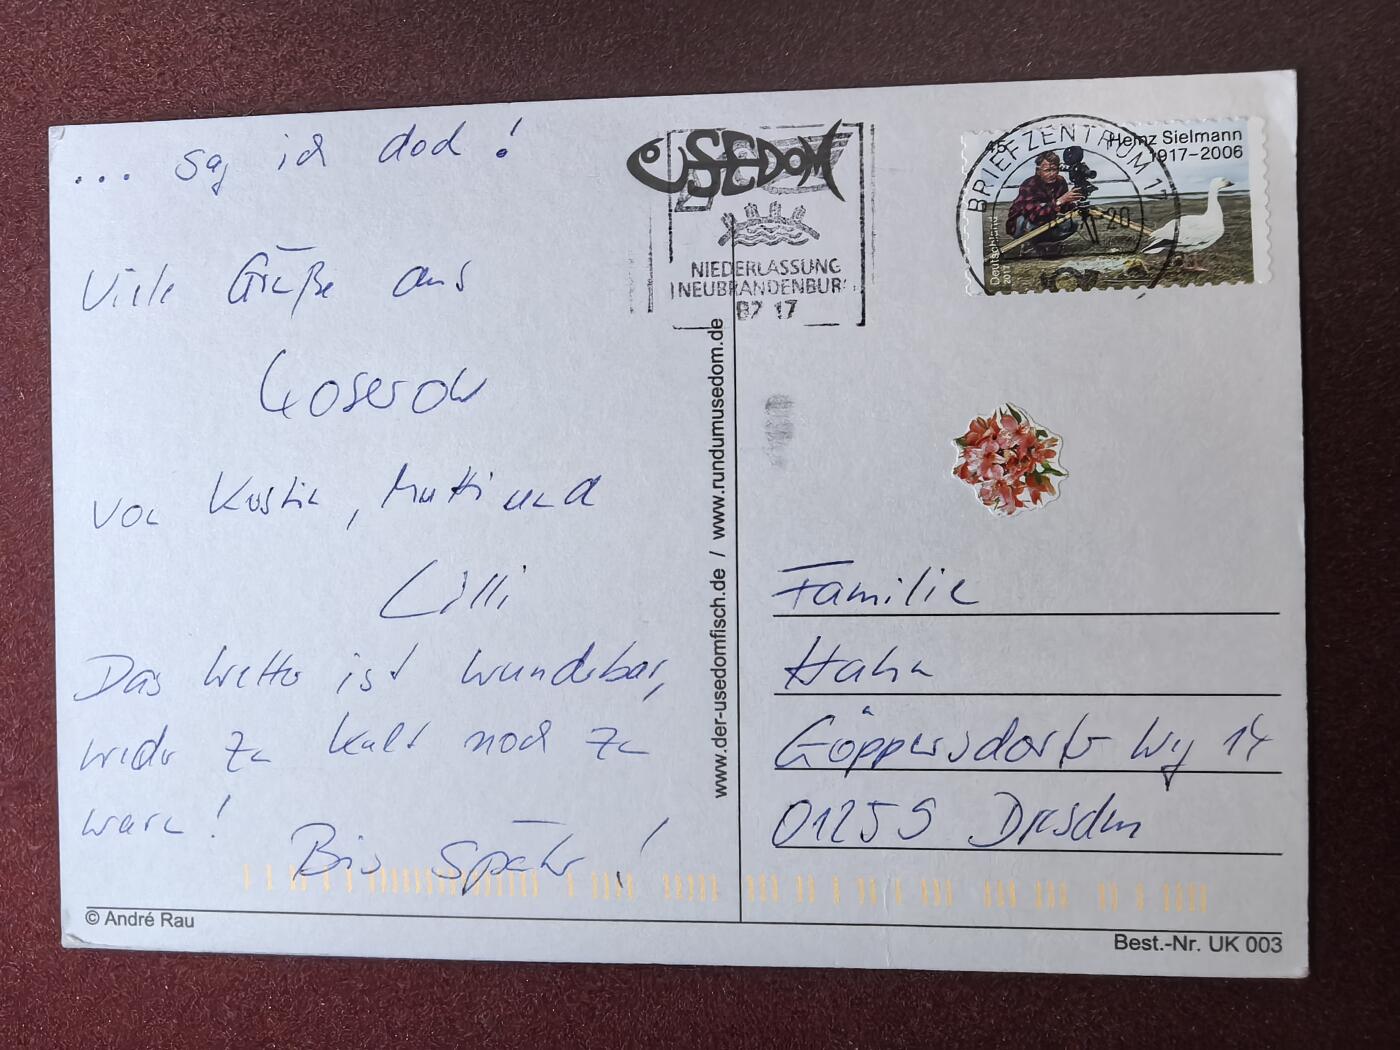 ... sag ich doch!
Viele Grüße aus
Koserow
von Kerstin, Mutti und
Lilli
Das Wetter ist wunderbar,
weder zu kalt noch zu
warm!
Bis später!
© André Rau
www.der-usedomfisch.de / www.rundumusedom.de
USEDOM
NIEDERLASSUNG
NEUBRANDENBURG
BZ 17
BRIEFZENTRUM 17
45
Heinz Sielmann
1917–2006
Deutschland
Familie
Hahn
Göppersdorfer Weg 14
01259 Dresden
Best.-Nr. UK 003